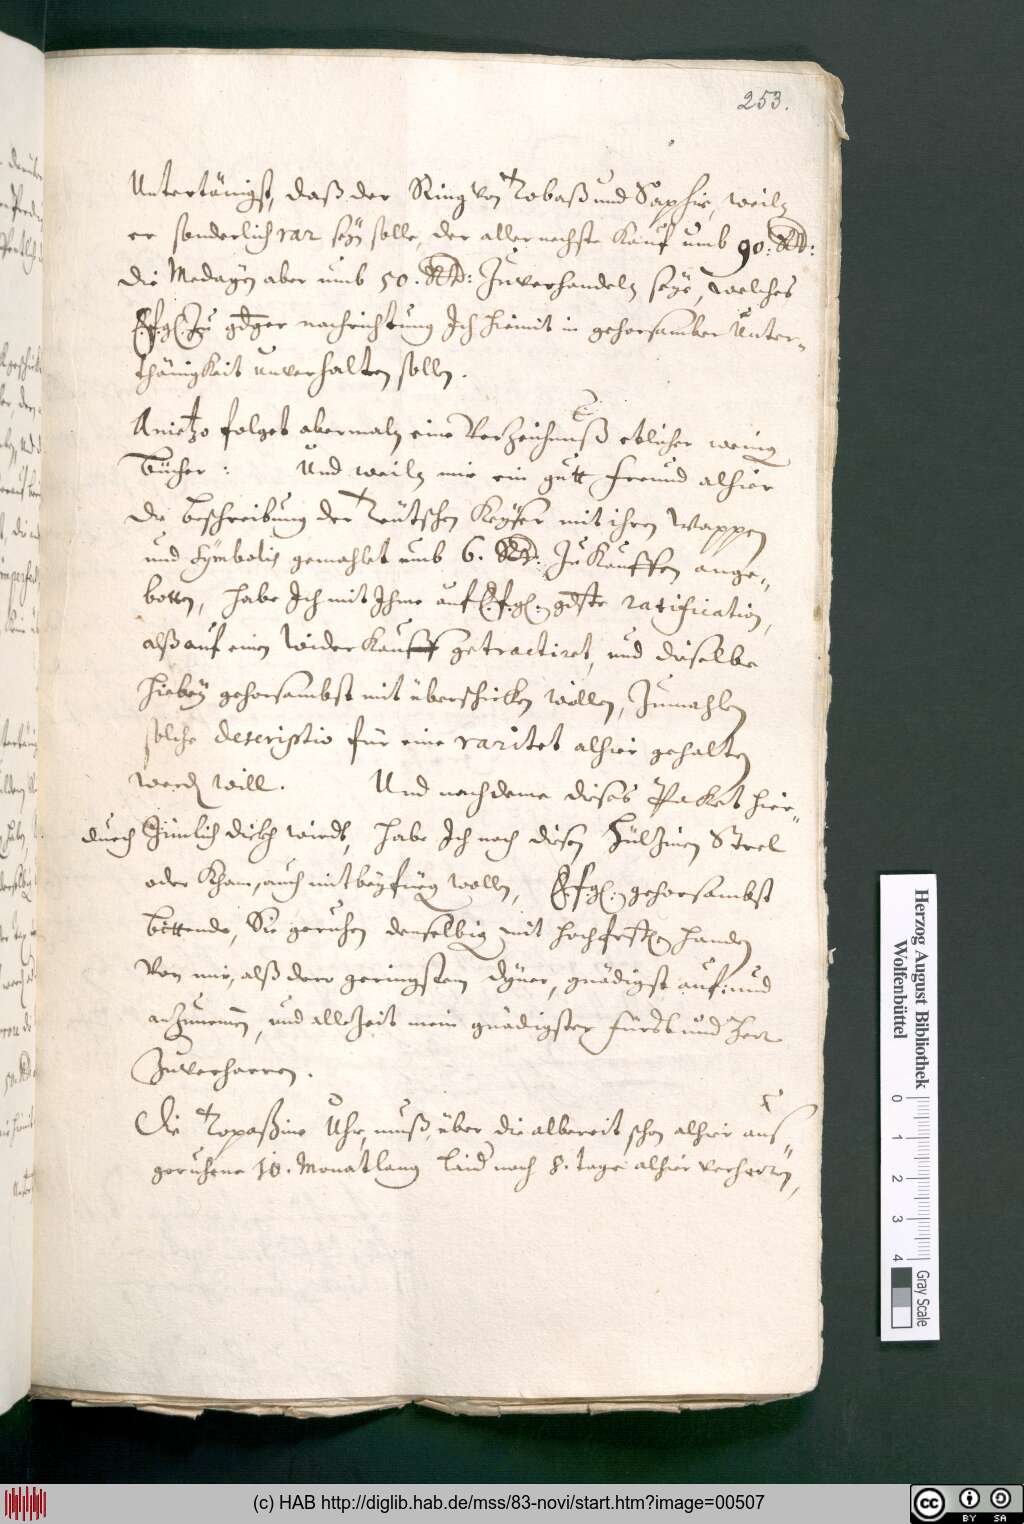 253.
Untertänigst, daß der Ring von Tobaß und Saphir, weiln
er sonderlich rar seÿn solle, der aller nechste Kauf umb 90. Rthr:
die Medaÿen aber umb 50. Rthr: Zuverhandeln seÿe, welches
E. f. g. Zu gdger nachrichtung Ich hiemit in gehorsamber Unter-
thänigkeit unverhalten sollen.
Anietzo folget abermaln eine Verzeichnuß etlicher wenig
Bücher: Und weiln mir ein gutt freund alhier
die beschreibung der Teütschen Keÿser mit ihren Wappen
und Sÿmbolis gemahlet umb 6. Rthr: Zu Kauffen ange-
botten, habe Ich mit Ihme auf E. f. g. gdste ratification,
alß auf einen widerKauff getractiret, und dieselbe
hiebeÿ gehorsambst mit überschicken wollen, Zumahlen
solche descriptio für eine raritet alhier gehalten
werden will. Und nach deme dieses Paket hier-
durch Zimlich dickh wirdt, habe Ich noch diesen hülZinen Strel
oder Kham, auch mit beÿfüeg wollen, E. f. g. gehorsambst
bittende, Sie geruhen denselbig mit hochfrstlen handen
von mir, alß dero geringsten dÿner, gnädigst auf: und
anZunemen, und alleZeit mein gnädigster Fürst und Herr
Zuverharren.
Die Topaßine Uhr, muß, über die albereit schon alhier auß-
geruhene 10. Monat lang laid noch 8. tage alhier verharrn,
Herzog August Bibliothek
Wolfenbüttel
0
1
2
3
4
Gray Scale
(c) HAB http://diglib.hab.de/mss/83-novi/start.htm?image=00507
cc
BY
SA